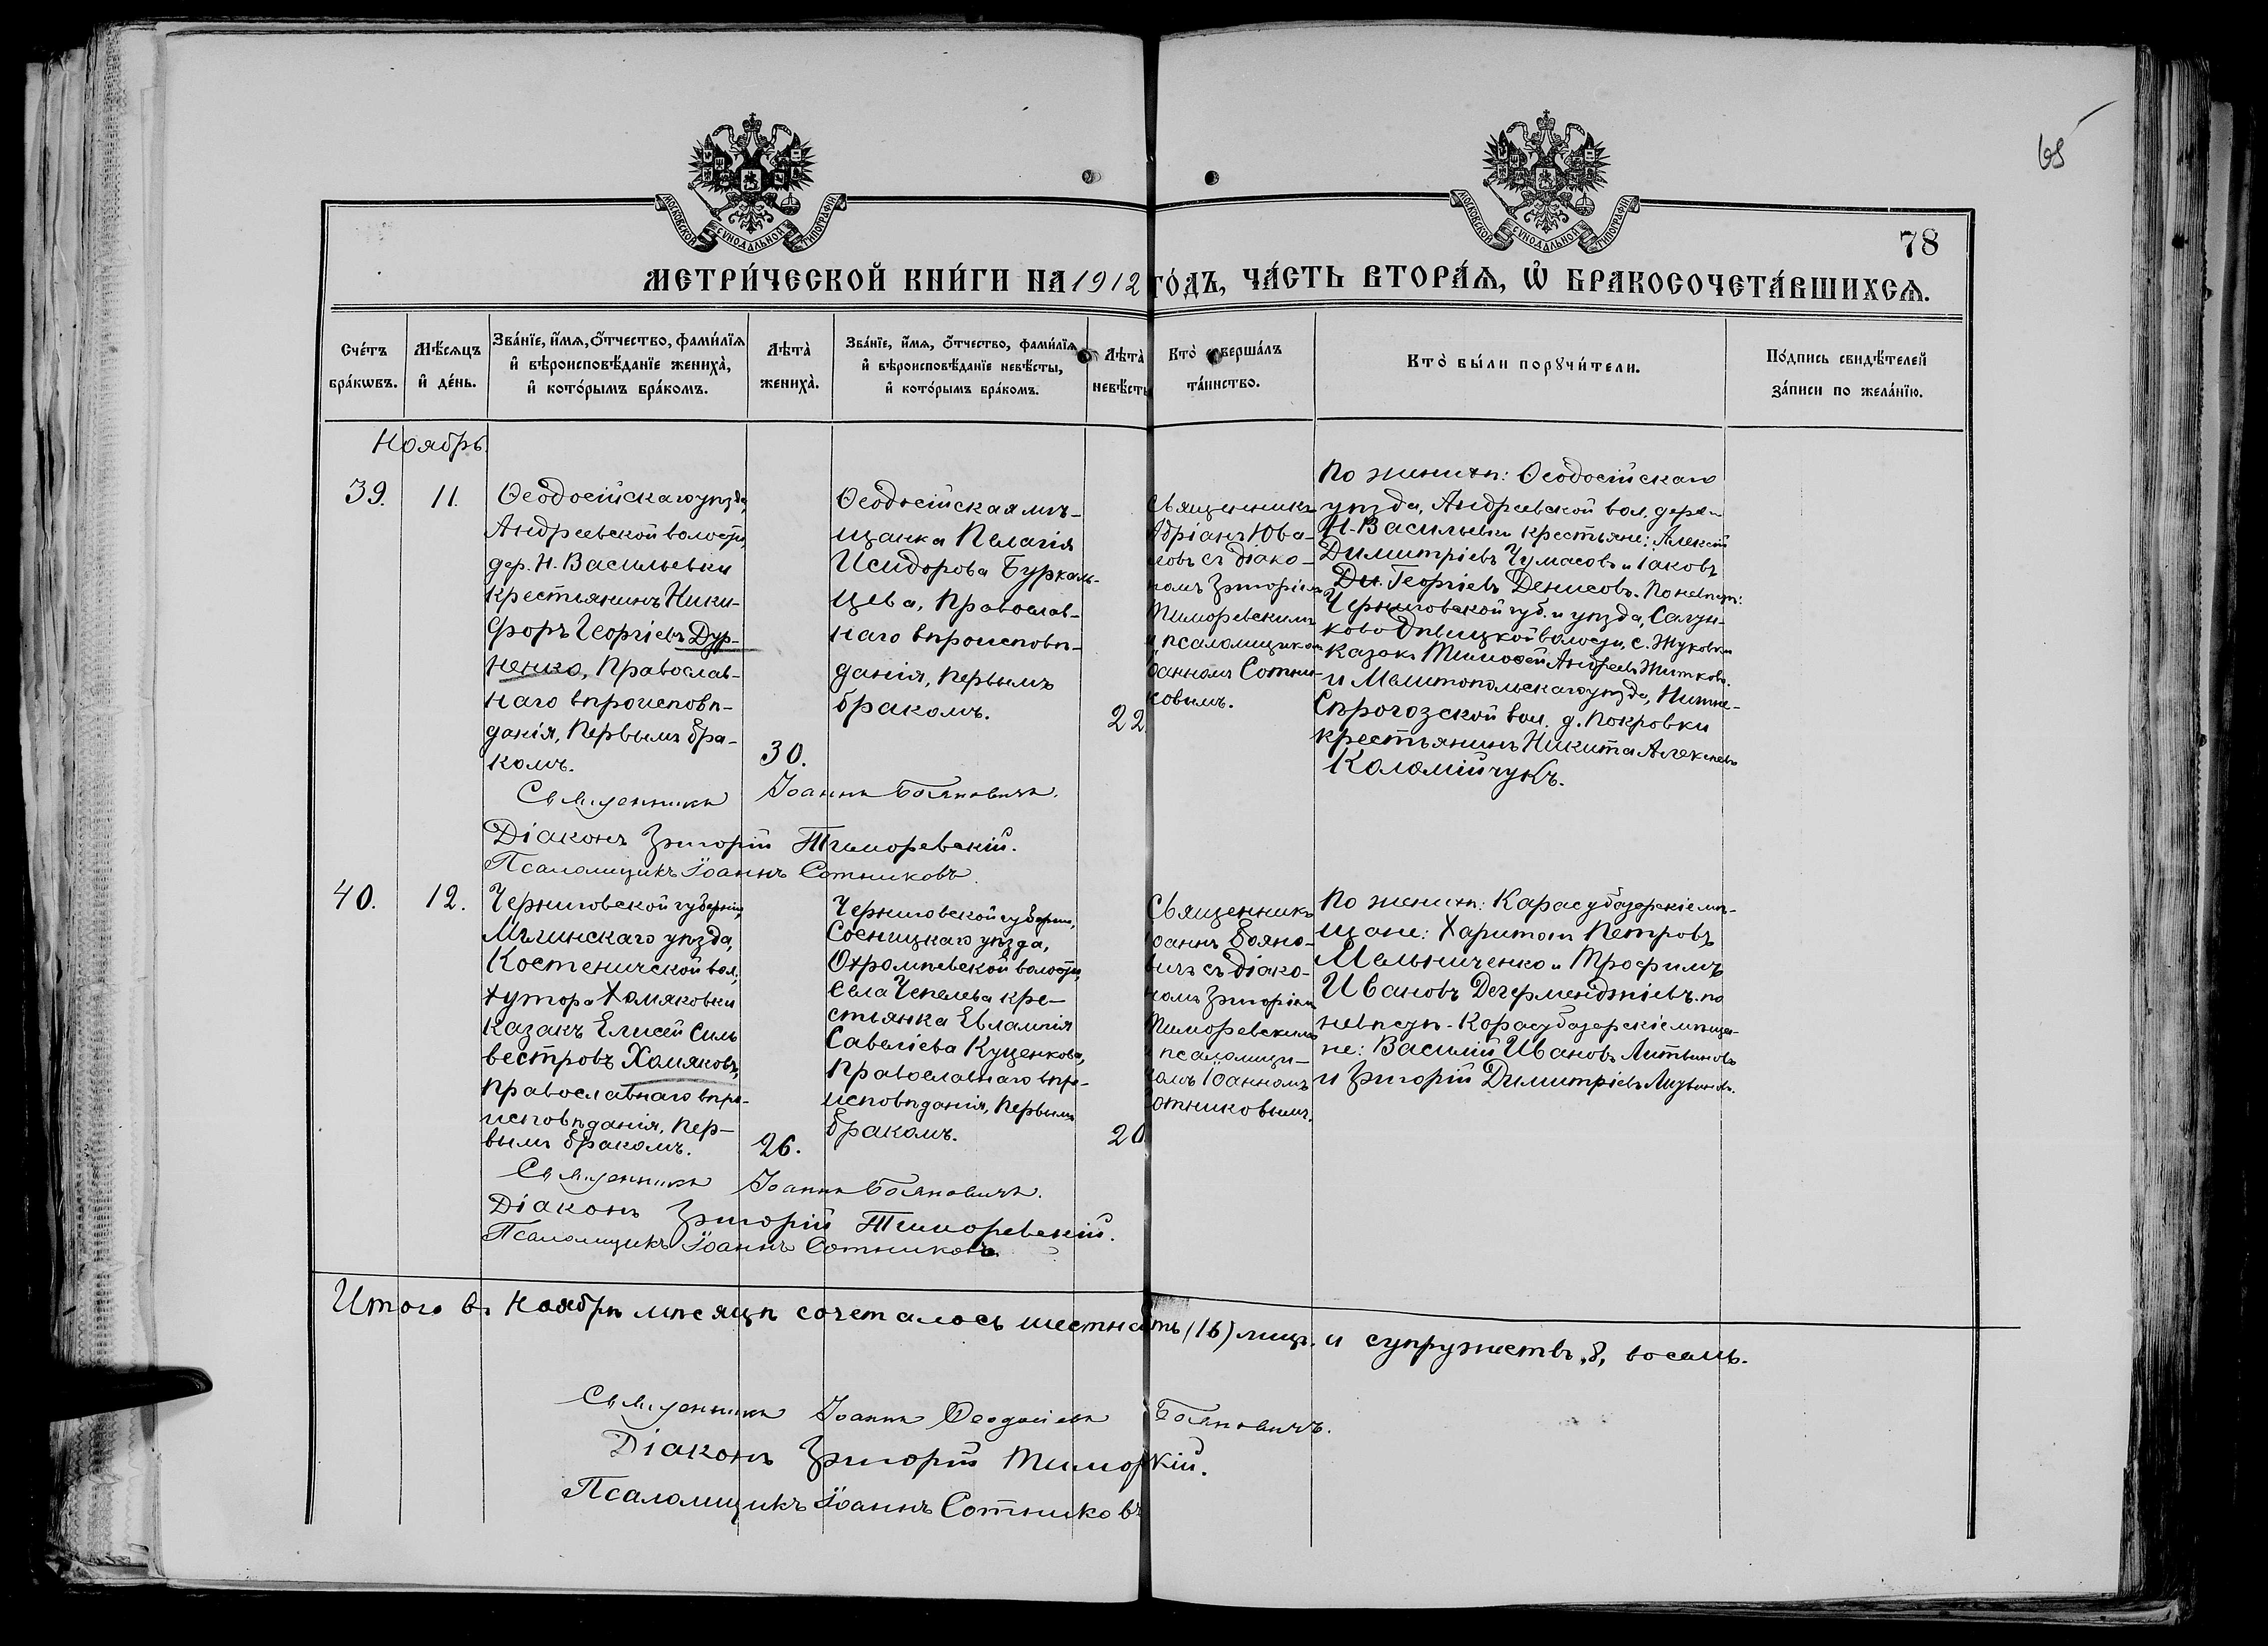 65
78
МОСКОВСКОЙ СѴНОДАЛЬНОЙ ТИПОГРАФІИ
МОСКОВСКОЙ СѴНОДАЛЬНОЙ ТИПОГРАФІИ
МЕТРИ́ЧЕСКОЙ КНИ́ГИ НА 1912 ГО́ДЪ, ЧА́СТЬ ВТОРА́Ѧ, Ѡ҆ БРАКОСОЧЕТА́ВШИХСѦ.
Сче́тъ
бра́кѡвъ.
Мѣ́сяцъ
и҆ де́нь.
Зва́нїе, и҆́мѧ, ѻ҆́тчество, фами́лїѧ
и҆ вѣроисповѣ́данїе жениха̀,
и҆ кото́рымъ бра́комъ.
Лѣ́та̀
жениха̀.
Зва́нїе, и҆́мѧ, ѻ҆́тчество, фами́лїѧ
и҆ вѣроисповѣ́данїе невѣ́сты,
и҆ кото́рымъ бра́комъ.
Лѣ́та̀
невѣ́сты
Кто̀ соверша́лъ
та́инство.
Кто̀ бы́ли порꙋчи́тели.
По́дпись свидѣ́телей
за́писи по жела́нїю.
Ноябрь.
39.
11.
Ѳеодосійскаго уѣзда,
Андреевской волости,
дер. Н. Васильевки
крестьянинъ Ники-
форъ Георгіевъ Дур-
ненко, Православ-
наго вѣроисповѣ-
данія, Первымъ бра-
комъ.
30.
Ѳеодосійская мѣ-
щанка Пелагія
Исидорова Буркаль-
цева, Православ-
наго вѣроисповѣ-
данія, Первымъ
бракомъ.
22.
Священникъ
Адріанъ Юва-
ловъ съ діако-
номъ Григоріемъ
Тиморевскимъ
и псаломщикомъ
Іоанномъ Сотни-
ковымъ.
По женихѣ: Ѳеодосійскаго
уѣзда, Андреевской вол. дерев.
Н. Васильевки крестьяне: Алексѣй
Димитріевъ Чумасовъ и Іаковъ
Ди. Георгіевъ Денисовъ. По невѣстѣ:
Черниговской губ. и уѣзда, Салты-
ково Дѣвицкой волости, с. Жуковки
казакъ Тимоѳей Андреевъ Житковъ
и Мелитопольскаго уѣзда, Нижне-
Сѣрогозской вол. д. Покровки
крестьянинъ Никита Алексѣевъ
Коломійчукъ.
Священникъ Іоаннъ Бояновичъ.
Діаконъ Григорій Тиморевскій.
Псаломщикъ Іоаннъ Сотниковъ.
40.
12.
Черниговской губерніи,
Мглинскаго уѣзда,
Костеничской вол.,
хутора Хомяковки
казакъ Елисей Силь
вестровъ Хомяковъ,
Православнаго вѣро-
исповѣданія, Пер-
вымъ бракомъ.
26.
Черниговской губерніи,
Сосницкаго уѣзда,
Охромѣевской волости,
села Чепелева кре-
стьянка Евлампія
Савеліева Куценкова,
Православнаго вѣро-
исповѣданія, Первымъ
бракомъ.
20
Священникъ
Іоаннъ Бояно-
вичъ съ діако-
номъ Григоріемъ
Тиморевскимъ
и псаломщи-
комъ Іоанномъ
Сотниковымъ.
По женихѣ: Карасубазарскіе мѣ-
щане: Харитонъ Петровъ
Мельниченко и Трофимъ
Ивановъ Дегерменджіевъ. по
невѣстѣ - Карасубазарскіе мѣща-
не: Василій Ивановъ Литвиновъ
и Григорій Димитріевъ Литвиновъ.
Священникъ Іоаннъ Бояновичъ.
Діаконъ Григорій Тиморевскій.
Псаломщикъ Іоаннъ Сотниковъ.
Итого въ Ноябрѣ мѣсяцѣ сочеталось шестнадцать (16) лицъ. и супружествъ „8„ восемь.
Священникъ Іоаннъ Ѳеодосіевъ Бояновичъ.
Діаконъ Григорій Тиморкій.
Псаломщикъ Іоаннъ Сотниковъ